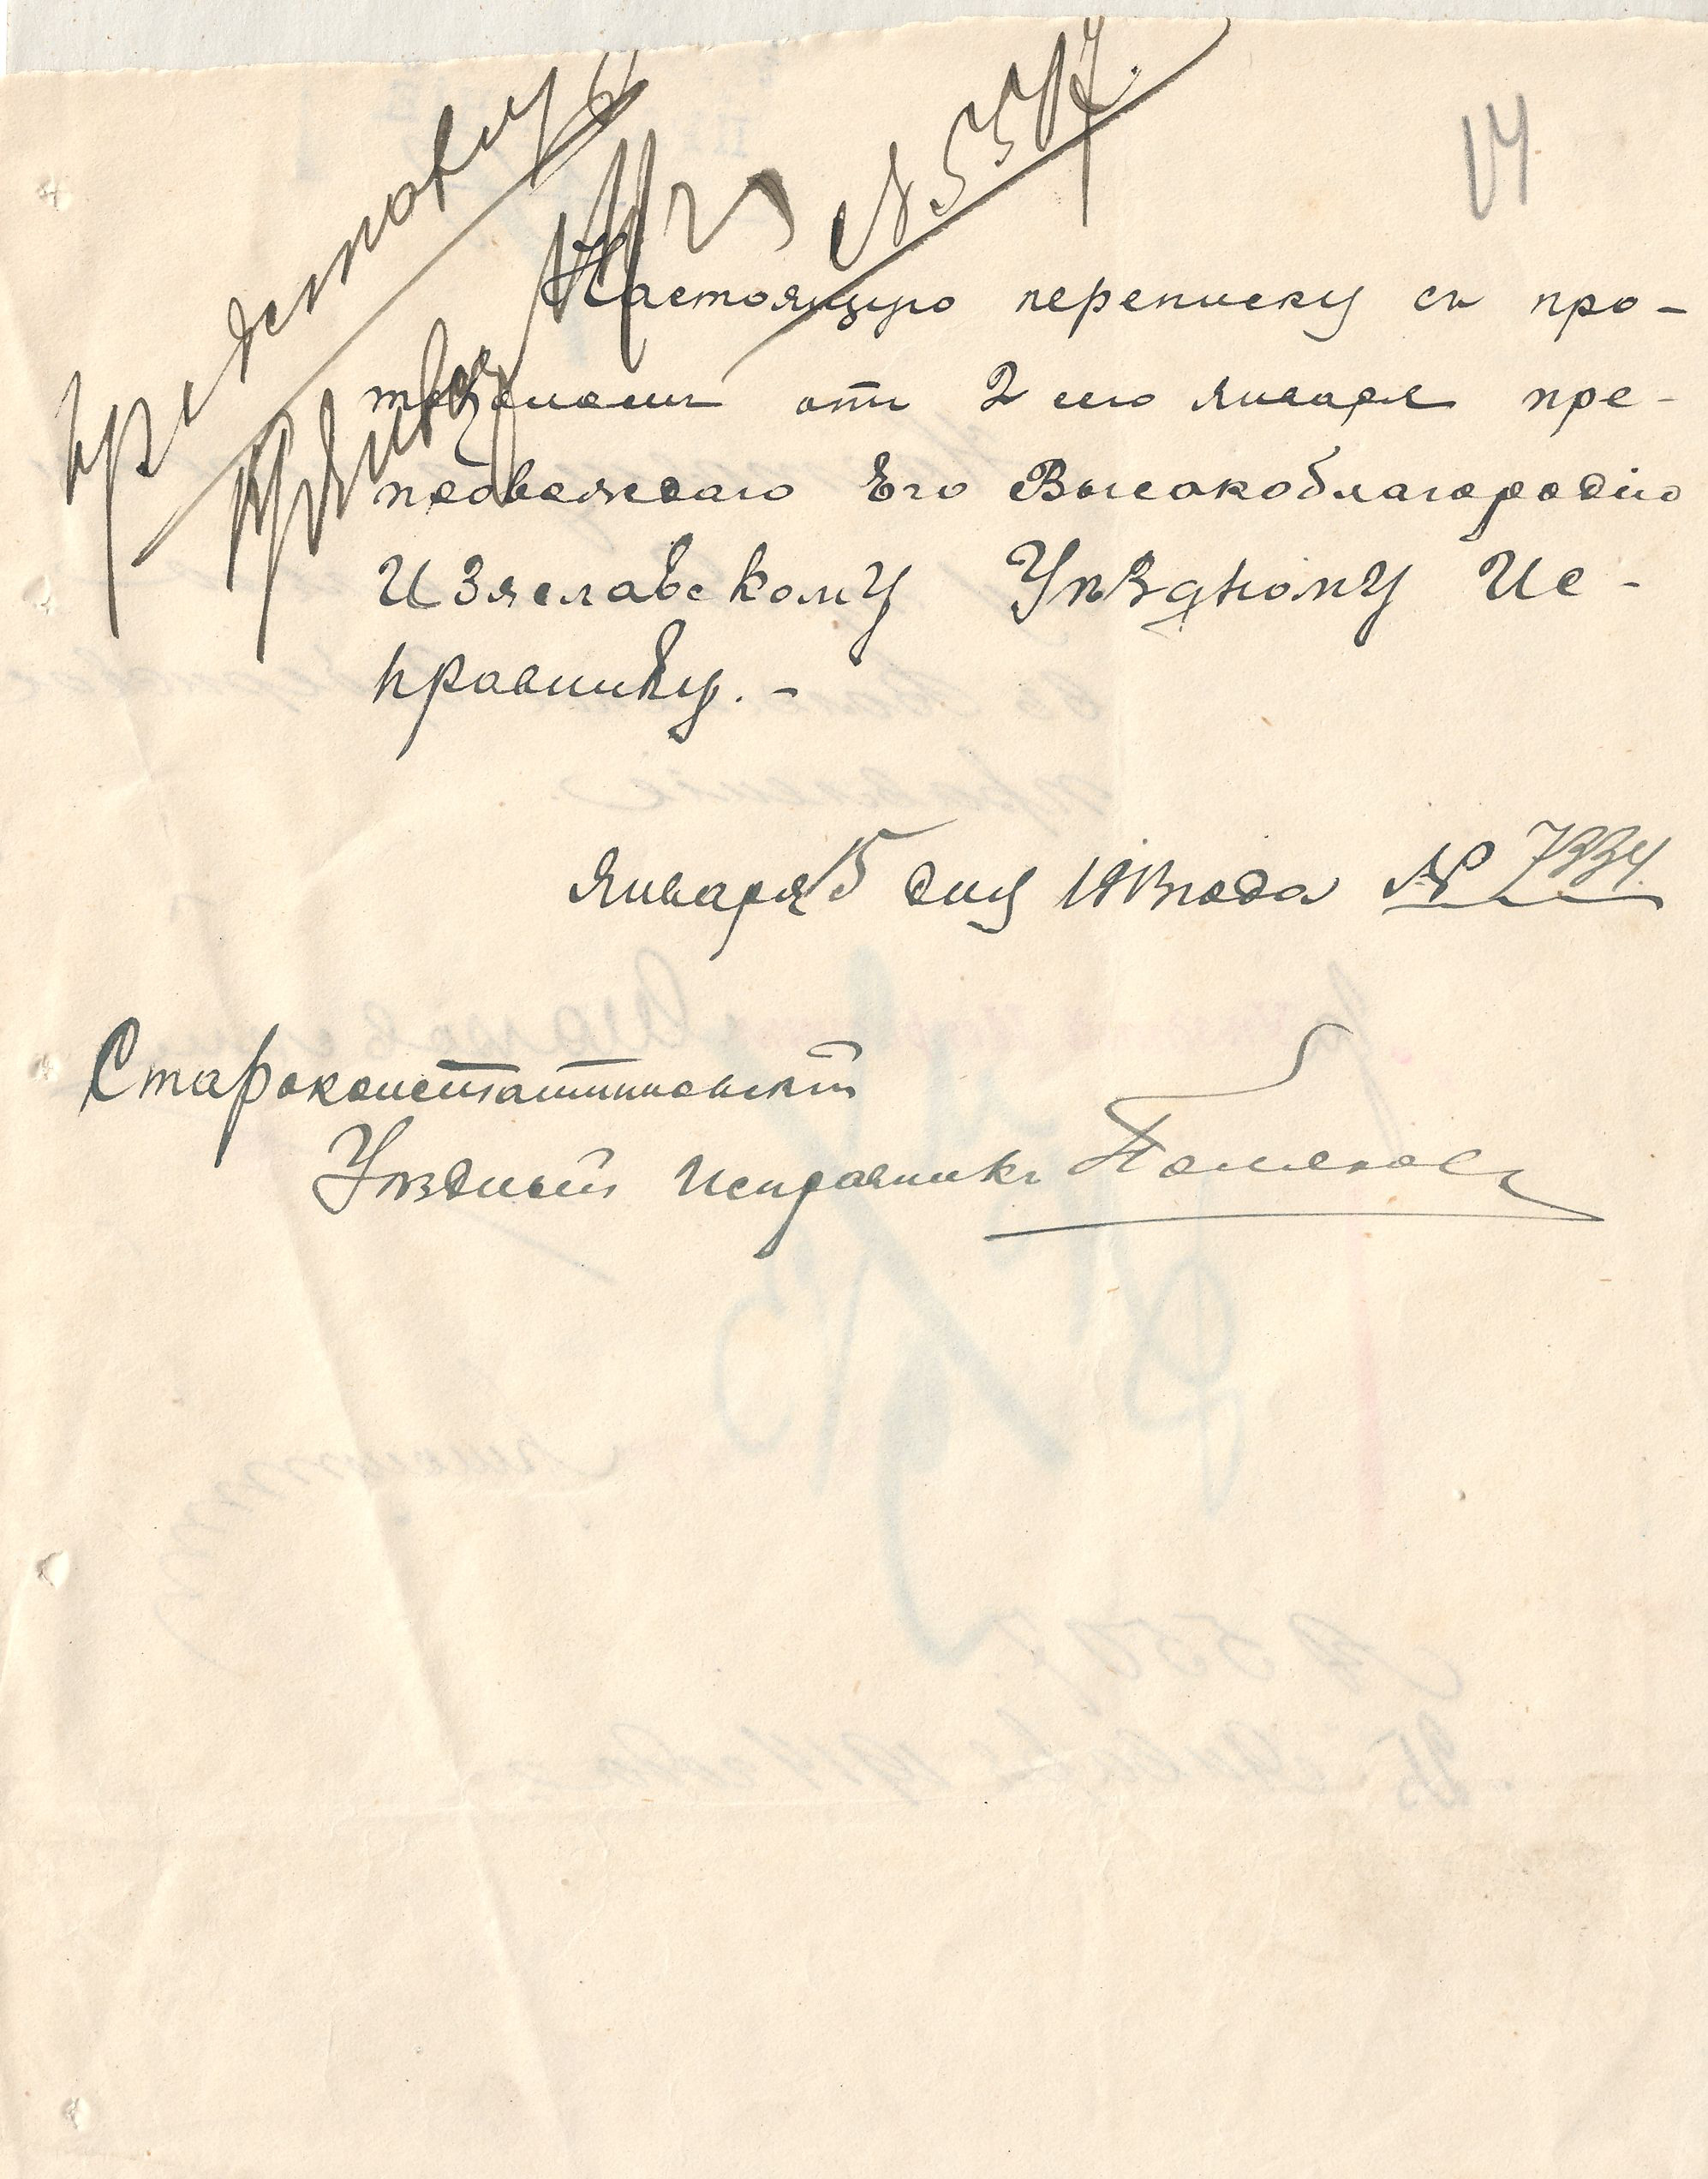 14
Представлено
№ 5517.
Настоящую переписку съ про-
токоломъ отъ 2 сего января пре-
провождаю Его Высокоблагородію
Изяславскому Уѣздному Ис-
правнику. -
Января 15 дня 1913 года № 7334.
Староконстантиновскій
Уѣздный Исправникъ